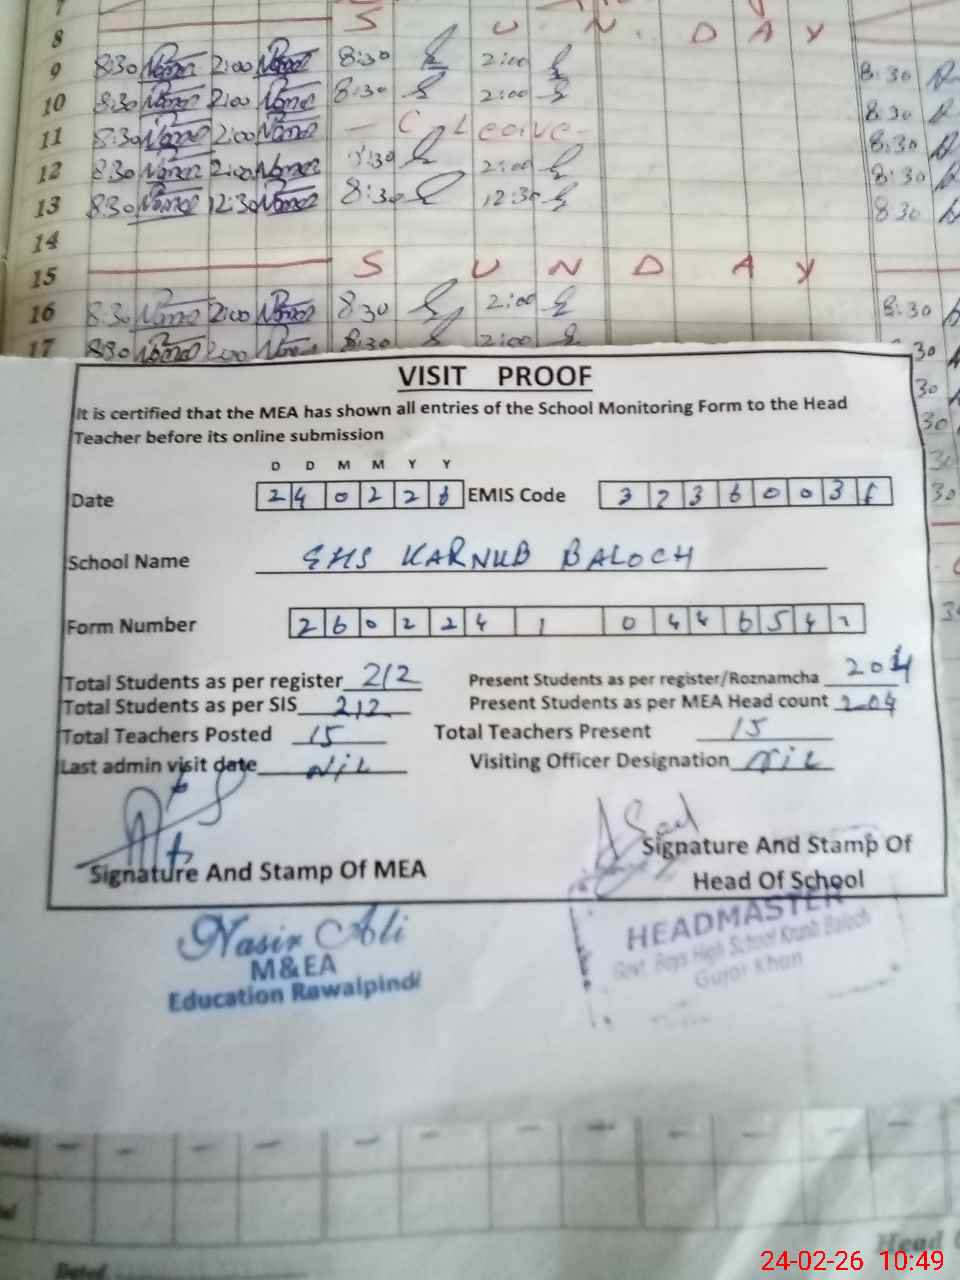 8 S U N. D A Y
9 8:30 2:00 8:30 2:00 8:30
10 8:30 2:00 8:30 2:00 8:30
11 8:30 2:00 - C Leave - 8:30
12 8:30 2:00 8:30 2:00 8:30
13 8:30 12:30 8:30 12:30 8 30
14
15 S U N D A Y
16 8:30 2:00 8 30 2:00 8:30
17 8:30 2:00 8:30 2:00 30
VISIT PROOF
It is certified that the MEA has shown all entries of the School Monitoring Form to the Head
Teacher before its online submission
D D M M Y Y
Date 24 02 26 EMIS Code
School Name GHS KARNUB BALOCH
Form Number 260224 1
Total Students as per register 212 Present Students as per register/Roznamcha 204
Total Students as per SIS 212 Present Students as per MEA Head count 204
Total Teachers Posted 15 Total Teachers Present 15
Last admin visit date Nil Visiting Officer Designation Nil
Signature And Stamp Of MEA
Signature And Stamp Of
Head Of School
Nasir Ali
M&EA
Education Rawalpindi
HEADMASTER
Govt. Boys High School Karnb Baloch
Gujar Khan
Head
Dated
24-02-26 10:49